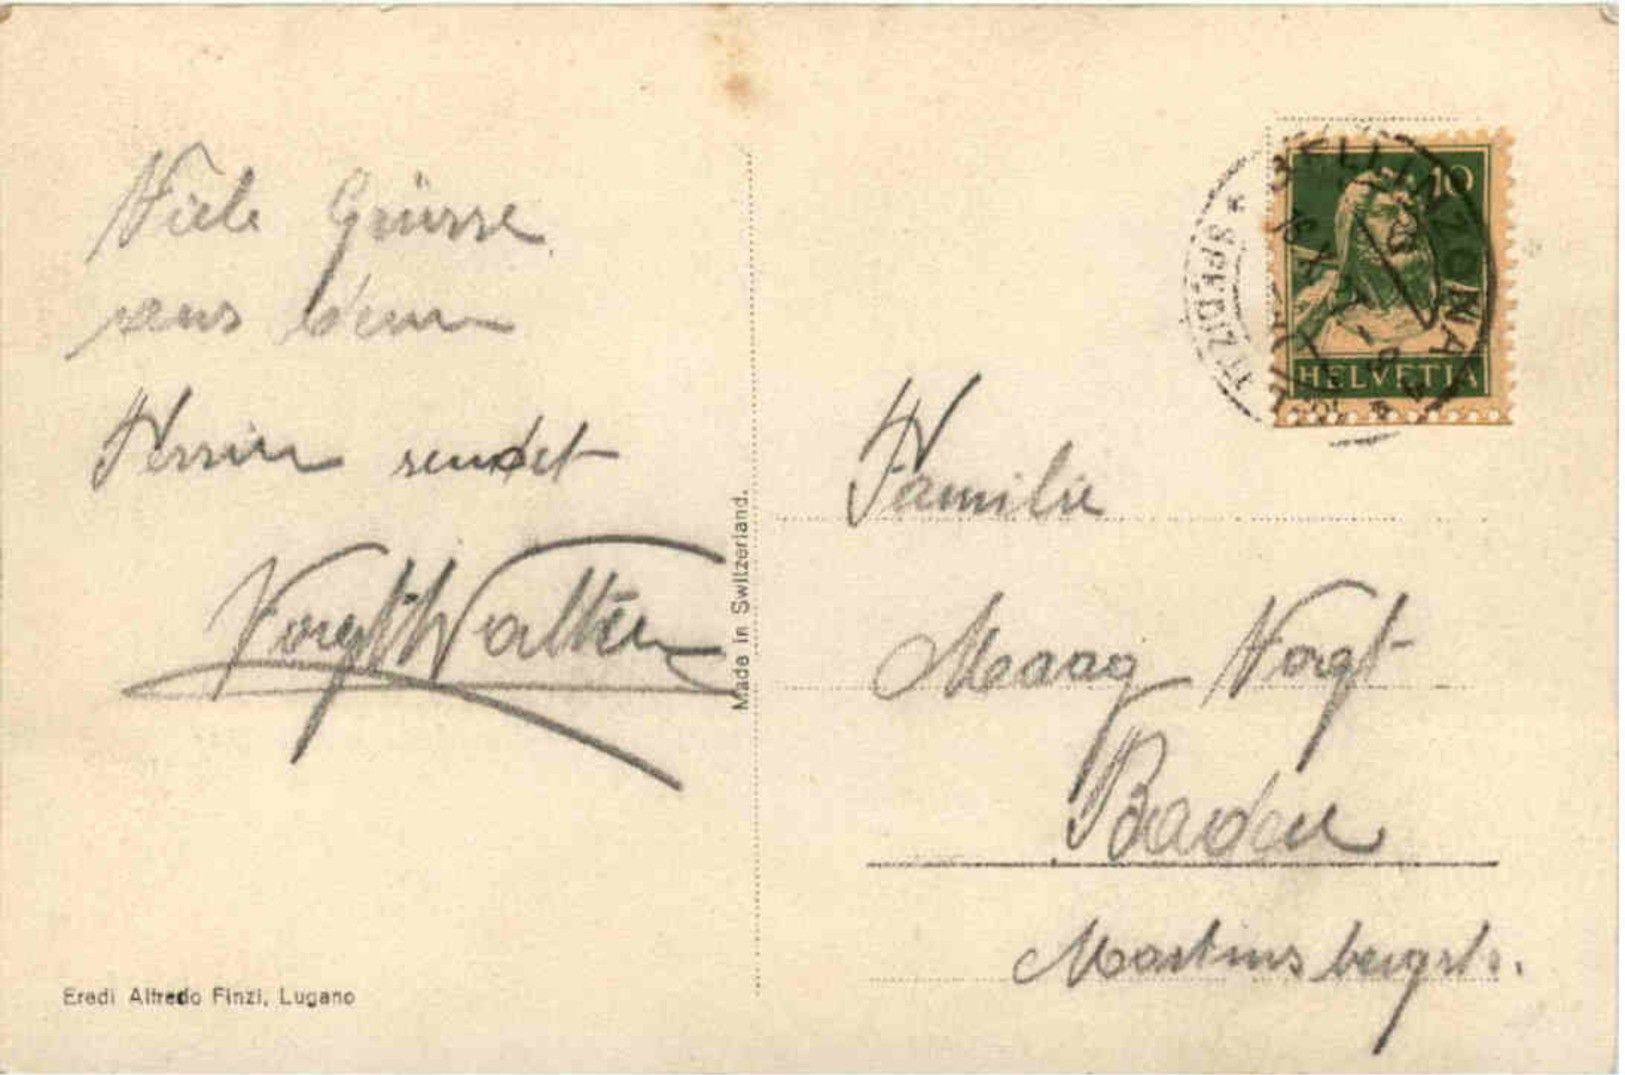 Viele Grüsse
aus dem
Tessin sendet
Vogt Walter
Made in Switzerland.
Eredi Alfredo Finzi, Lugano
BELLINZONA
SPEDIZ.
10
HELVETIA
Familie
Maag Vogt
Baden
Martinsbergstr.